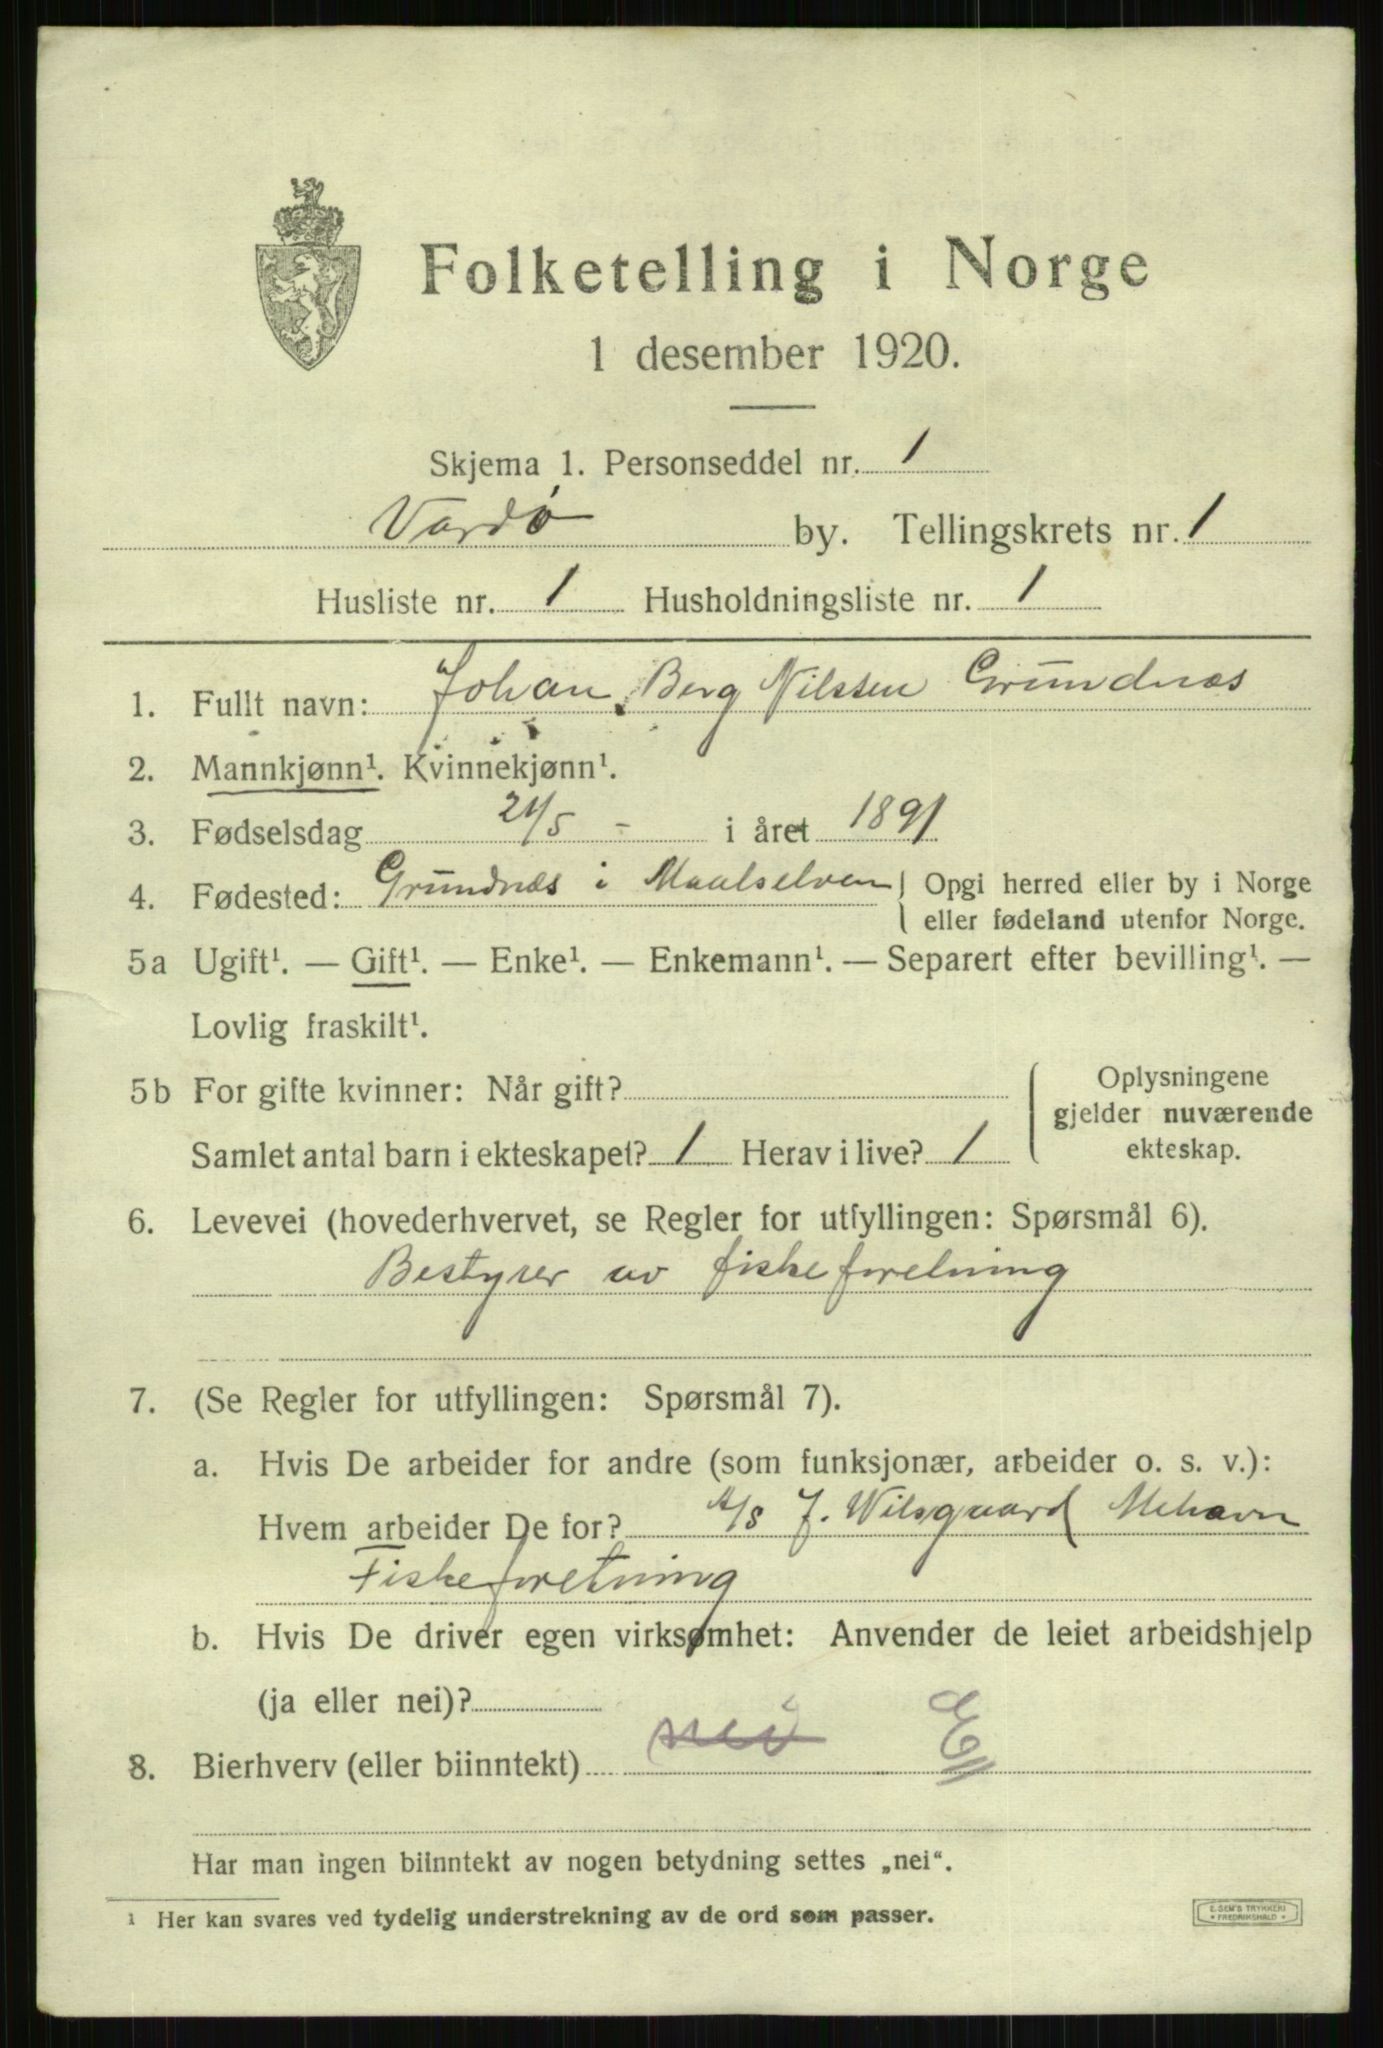 Folketelling i Norge
1 desember 1920.
Skjema 1. Personseddel nr. 1
Vardø by. Tellingskrets nr. 1
Husliste nr. 1 Husholdningsliste nr. 1
1. Fullt navn: Johan Berg Nilssen Grundnæs
2. Mannkjønn¹. Kvinnekjønn¹.
3. Fødselsdag 21/5 - i året 1891
4. Fødested: Grundnæs i Maalselven { Opgi herred eller by i Norge
eller fødeland utenfor Norge.
5a Ugift¹. — Gift¹. — Enke¹. — Enkemann¹. — Separert efter bevilling¹. —
Lovlig fraskilt¹.
5b For gifte kvinner: Når gift?
Samlet antal barn i ekteskapet? 1 Herav i live? 1
Oplysningene
gjelder nuværende
ekteskap.
6. Levevei (hovederhvervet, se Regler for utfyllingen: Spørsmål 6).
Bestyrer av fiskeforretning
7. (Se Regler for utfyllingen: Spørsmål 7).
a. Hvis De arbeider for andre (som funksjonær, arbeider o. s. v.):
Hvem arbeider De for? A/S J. Wilsgaard Mehavn
Fiskeforetning
b. Hvis De driver egen virksomhet: Anvender de leiet arbeidshjelp
(ja eller nei)?
8. Bierhverv (eller biinntekt) nei
Har man ingen biinntekt av nogen betydning settes „nei“.
1 Her kan svares ved tydelig understrekning av de ord som passer.
E. SEM'S TRYKKERI
* FREDRIKSHALD *